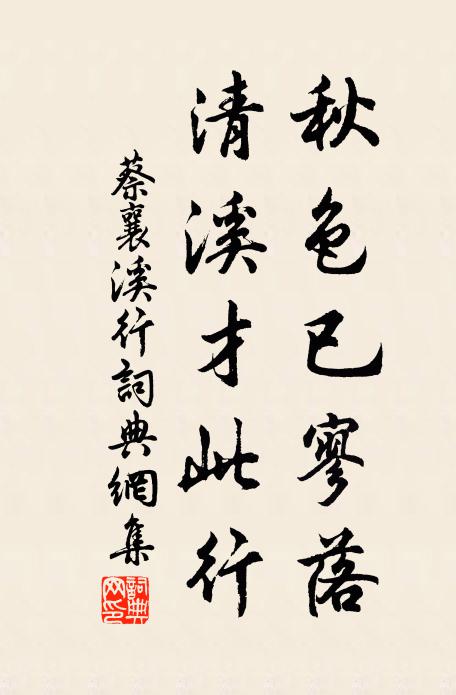 秋色已寥落
清溪才此行
蔡襄溪行詞典網集
詞典网印